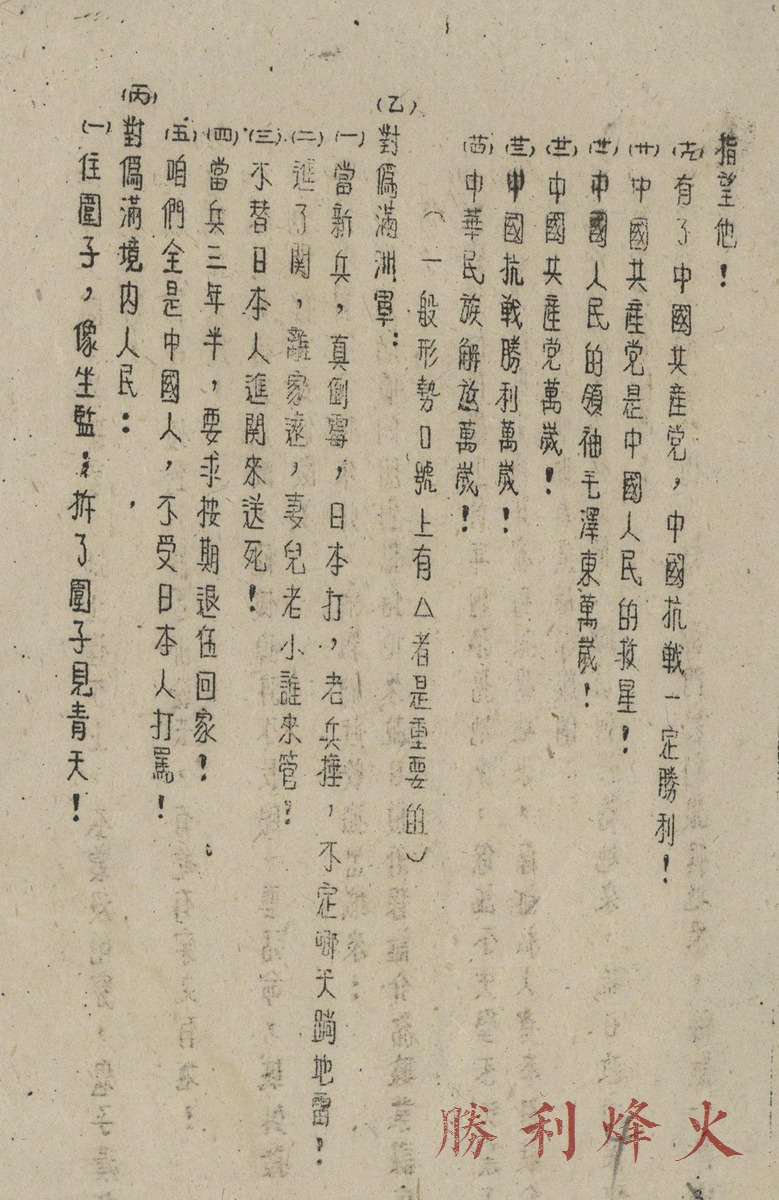 指望他!
(尤)有了中國共產党,中國抗战一定勝利!
(廿)中國共產党是中國人民的救星!
(廿)中國人民的領袖毛澤東萬歲!
(廿)中國共產党萬歲!
(卅)中國抗战勝利萬歲!
(茴)中華民族解放萬歲!
(一般形勢口號上有△者是重要的)
(乙)對偽滿洲軍:
(一)當新兵,真倒霉,日本打,老兵捶,不定哪天蹦地雷!
(二)進了関,離家遠,妻兒老小誰來管!
(三)不替日本人進関來送死!
(四)當兵三年半,要求按期退伍回家!
(五)咱們全是中國人,不受日本人打罵!
(丙)對偽滿境内人民:
(一)住圍子,像坐監;拆了圍子見青天!
勝利烽火